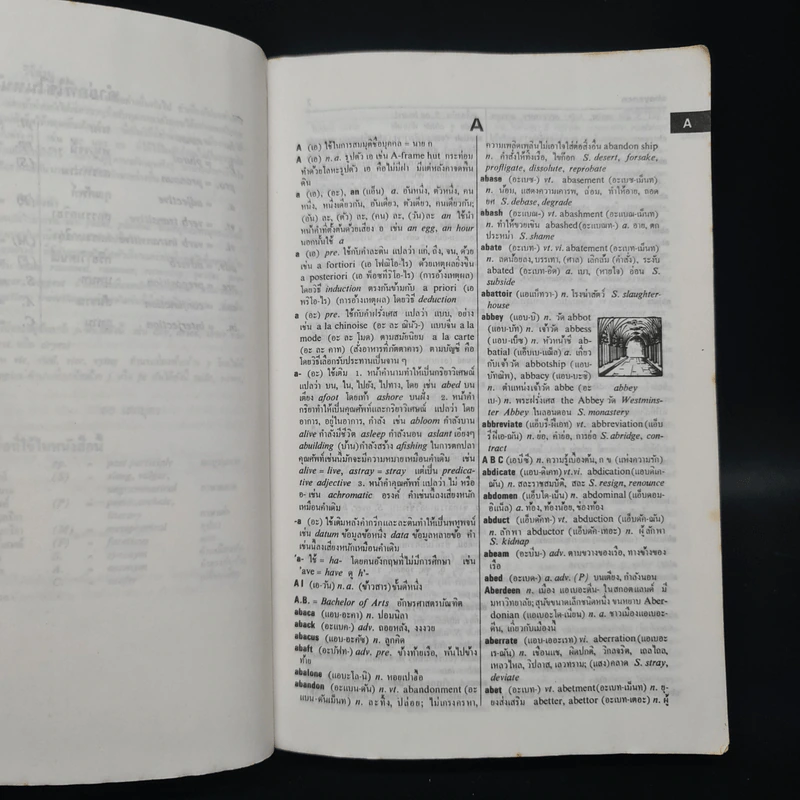 A
A
A (เอ) ใช้ในการสมมุติชื่อบุคคล = นาย ก
A (เอ) n. a. รูปตัว เอ เช่น A-frame hut กระท่อม
ทำด้วยโครงรูปตัว เอ คือไม่มีฝา มีแต่หลังคาจดพื้น
ดิน
a (เอ), (อะ), an (แอ็น) a. อันหนึ่ง, ตัวหนึ่ง, คน
หนึ่ง, หนึ่งเดียวกัน, อันเดียว, ตัวเดียว, คนเดียวกัน;
(อัน) ละ, (ตัว) ละ, (คน) ละ, (วัน)ละ an ใช้นำ
หน้าคำที่ตั้งต้นด้วยเสียง อ เช่น an egg, an hour
นอกนั้นใช้ a
a (เอ) pre. ใช้กับคำละติน แปลว่า แก่, ถึง, จน, ด้วย
เช่น a fortiori (เอ โฟฌิโอ-ไร) ด้วยเหตุผลยิ่งขึ้น
a posteriori (เอ พ็อซทีริโอ-ไร) (การอ้างเหตุผล)
โดยวิธี induction ตรงกันข้ามกับ a priori (เอ
พริโอ-ไร) (การอ้างเหตุผล) โดยวิธี deduction
a (อะ) pre. ใช้กับคำฝรั่งเศส แปลว่า แบบ, อย่าง
เช่น a la chinoise (อะ ละ ฌินัว-) แบบจีน a la
mode (อะ ละ โมด) ตามสมัยนิยม a la carte
(อะ ละ คาท) (สั่งอาหารที่ภัตตาคาร) ตามบัญชี คือ
โดยวิธีเลือกรับประทานเป็นจาน ๆ
a- (อะ) ใช้เติม 1. หน้าคำนามทำให้เป็นกริยาวิเศษณ์
แปลว่า บน, ใน, ไปยัง, ไปทาง, โดย เช่น abed บน
เตียง afoot โดยเท้า ashore บนฝั่ง 2. หน้าคำ
กริยาทำให้เป็นคุณศัพท์และกริยาวิเศษณ์ แปลว่า โดย
อาการ, อยู่ในอาการ, กำลัง เช่น abloom กำลังบาน
alive กำลังมีชีวิต asleep กำลังนอน aslant เอียงๆ
abuilding (บ้าน)กำลังสร้าง afishing ในการตกปลา
คุณศัพท์เช่นนี้มักจะมีความหมายเหมือนคำเดิม เช่น
alive = live, astray = stray แต่เป็น predica-
tive adjective 3. หน้าคำคุณศัพท์ แปลว่า ไม่ หรือ
อ- เช่น achromatic อรงค์ คำเช่นนี้ลงเสียงหนัก
เหมือนคำเดิม
-a (อะ) ใช้เติมหลังคำกรีกและละตินทำให้เป็นพหูพจน์
เช่น datum ข้อมูลข้อหนึ่ง data ข้อมูลหลายข้อ คำ
เช่นนี้ลงเสียงหนักเหมือนคำเดิม
'a- ใช้ = ha- โดยคนอังกฤษที่ไม่มีการศึกษา เช่น
'ave = have ดู h'-
A I (เอ-วัน) n. a. (ข้าวสาร)ชั้นดีหนึ่ง
A.B. = Bachelor of Arts อักษรศาสตรบัณฑิต
abaca (แอบ-อะคา) n. ปอมนิลา
aback (อะแบค-) adv. ถอยหลัง, งงงวย
abacus (แอบ-อะคัซ) n. ลูกคิด
abaft (อะบัฟท-) adv. pre. ข้างท้ายเรือ, พ้นไปข้าง
ท้าย
abalone (แอบะโล-นิ) n. หอยเป๋าฮื้อ
abandon (อะแบน-ดัน) n. vt. abandonment (อะ
แบน-ดันเม็นท) n. ละทิ้ง, ปล่อย; ไม่เกรงครหา,
ความเพลิดเพลินไม่เอาใจใส่ต่อสิ่งอื่น abandon ship
n. คำสั่งให้ทิ้งเรือ, ไขก๊อก S. desert, forsake,
profligate, dissolute, reprobate
abase (อะเบซ-) vt. abasement (อะเบซ-เม็นท)
n. น้อม, แสดงความเคารพ, ถ่อม, ทำให้อาย, ถอด
ยศ S. debase, degrade
abash (อะแบฌ-) vt. abashment (อะแบฌ-เม็นท)
n. ทำให้ขวยเขิน abashed(อะแบฌท-) a. อาย, ตก
ประหม่า S. shame
abate (อะเบท-) vt. vi. abatement (อะเบท-เม็นท)
n. ลดน้อยลง, บรรเทา, (ศาล) เลิกล้ม (คำสั่ง), ระงับ
abated (อะเบท-อิด) a. เบา, (หายใจ) อ่อน S.
subside
abattoir (แอแบ็ทวา-) n. โรงฆ่าสัตว์ S. slaughter-
house
abbey (แอบ-บิ) n. วัด abbot
(แอบ-บัท) n. เจ้าวัด abbess
(แอบ-เบ็ซ) n. หัวหน้าชี ab-
batial (แอ็บเบ-แฌ็ล) a. เกี่ยว
กับเจ้าวัด abbotship (แอบ-
บัทฌิพ), abbacy (แอบ-บะซิ)
n. ตำแหน่งเจ้าวัด abbe (อะ
เบ-) n. พระฝรั่งเศส the Abbey วัด Westmins-
ter Abbey ในลอนดอน S. monastery
abbey
abbreviate (แอ็บรี-ฝิเอท) vt. abbreviation (แอ็บ
รีฝิเอ-ฌัน) n. ย่อ, คำย่อ, การย่อ S. abridge, con-
tract
A B C (เอบีซี) n. ความรู้เบื้องต้น, ก ข (แห่งความรัก)
abdicate (แอบ-ดิเคท) vt. vi. abdication (แอบดิเค-
ฌัน) n. สละราชสมบัติ, สละ S. resign, renounce
abdomen (แอ็บโด-เม็น) n. abdominal (แอ็บดอม-
อิแน็ล) a. ท้อง, ท้องน้อย, ช่องท้อง
abduct (แอ็บดัคท-) vt. abduction (แอ็บดัค-ฌัน)
n. ลักพา abductor (แอ็บดัค-เทอะ) n. ผู้ลักพา
S. kidnap
abeam (อะบีม-) adv. ตามขวางของเรือ, ทางข้างของ
เรือ
abed (อะเบด-) a. adv. (P) บนเตียง, กำลังนอน
Aberdeen n. เมือง แอเบอะดีน- ในสกอตแลนด์ มี
มหาวิทยาลัย; สุนัขขนาดเล็กชนิดหนึ่ง ขนหยาบ Aber-
donian (แอเบอะโด-เนียน) n. a. ชาวเมืองแอเบอะ-
ดีน, เกี่ยวกับเมืองนี้
aberrate (แอบ-เออะเรท) vi. aberration (แอเบอะ
เร-ฌัน) n. เชือนแช, ผิดปกติ, วิกลจริต, เถลไถล,
เหลวไหล, วิปลาส, เลวทราม; (แสง)คลาด S. stray,
deviate
abet (อะเบท-) vt. abetment (อะเบท-เม็นท) n. ยุ-
ยงส่งเสริม abetter, abettor (อะเบท-เทอะ) n. ผู้